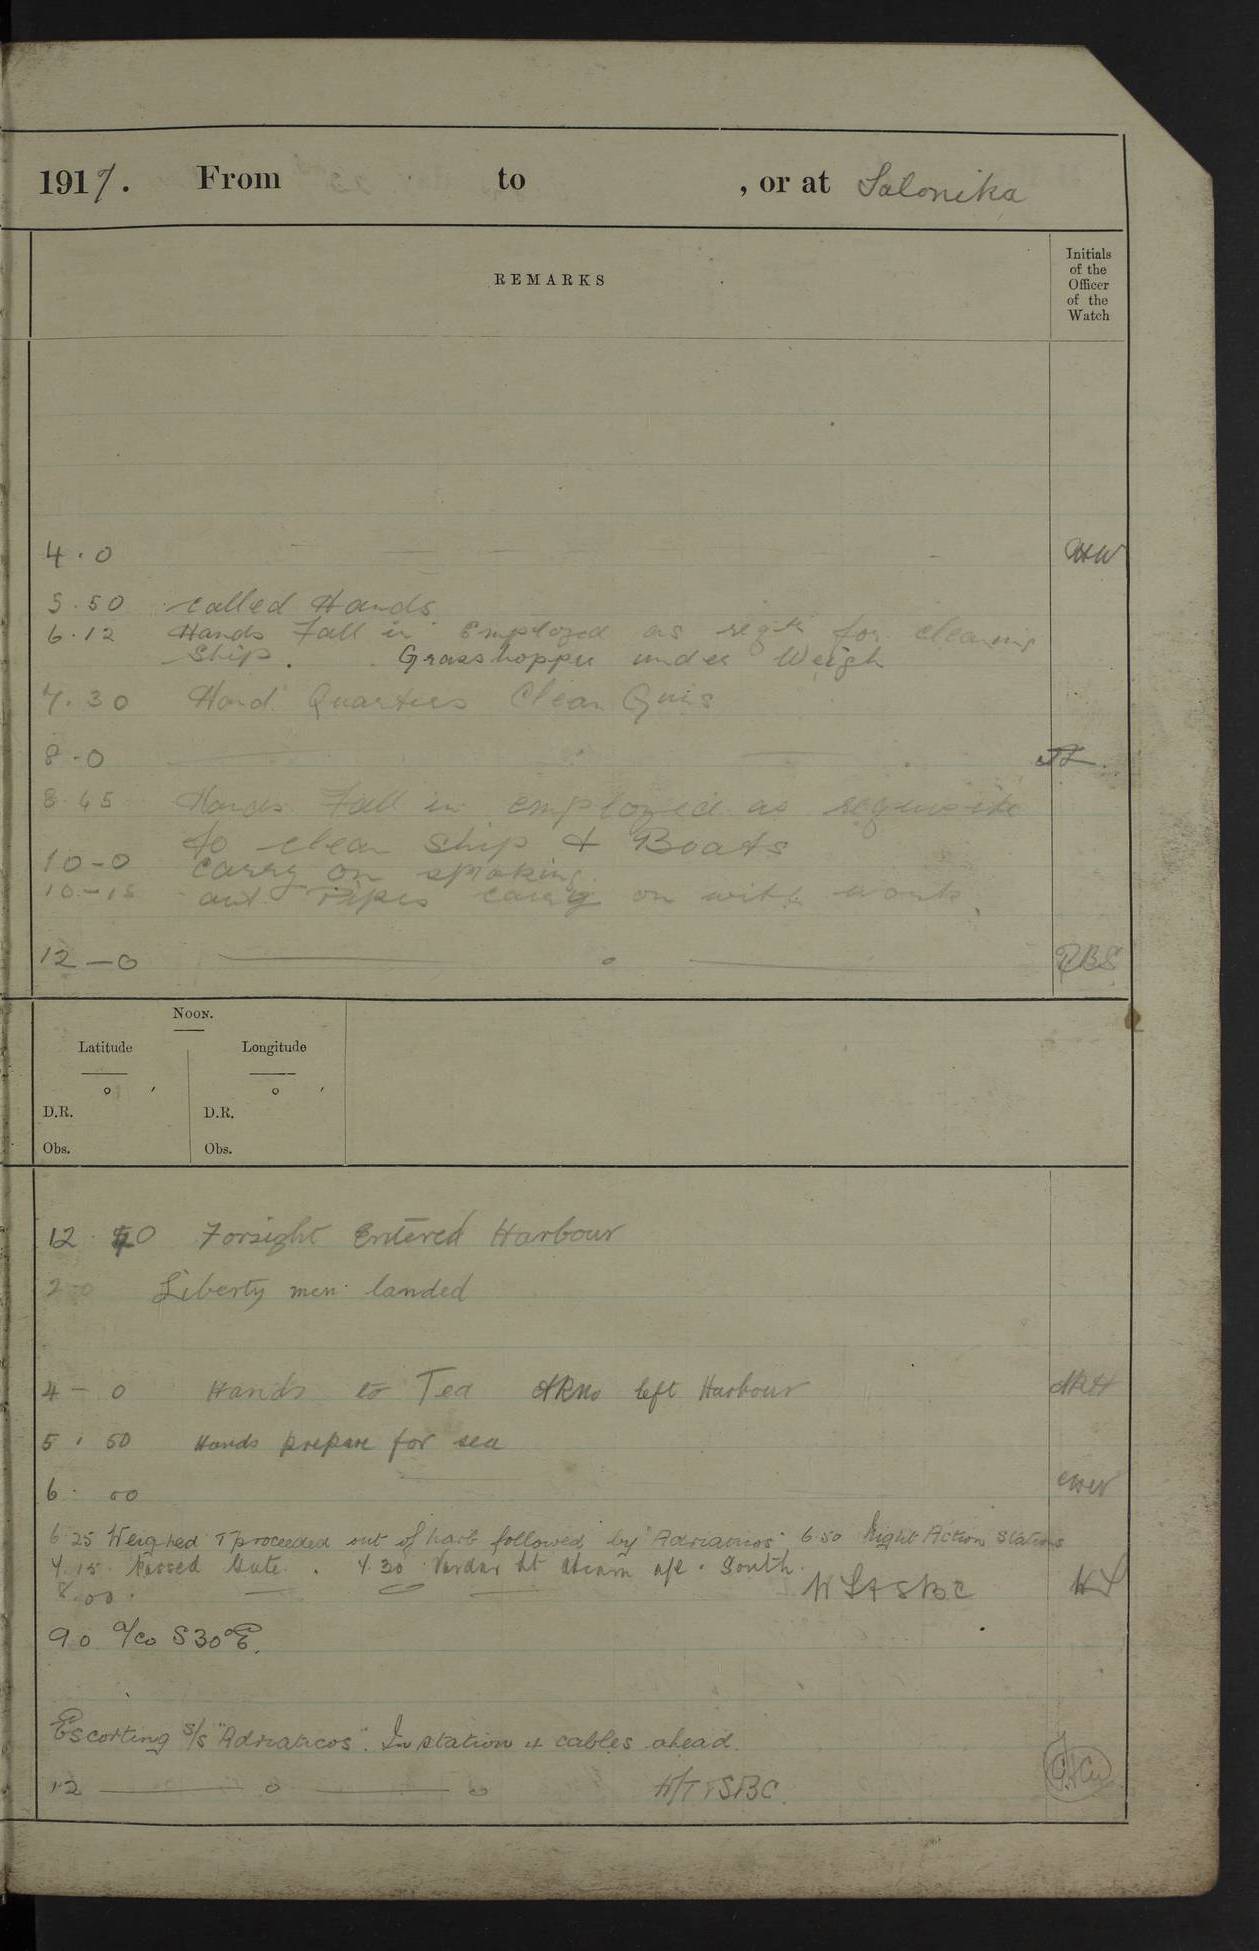 1917. From to , or at Salonika
REMARKS
Initials
of the
Officer
of the
Watch
4.0
5.50 called Hands
6.12 Hands Fall in Employed as reqte for cleaning
Ship. Grasshopper under Weigh
7.30 Hand Quarters Clean Guns
8-0
8.45 Hands Fall in employed as requisite
to clean ship & Boats
10-0 carry on smoking.
10-15 out Pipes carry on with work.
12-0 RBS
Noon.
Latitude Longitude
° ′ ° ′
D.R. D.R.
Obs. Obs.
12. 40 Forsight Entered Harbour
2-0 Liberty men landed
4-0 Hands to Tea ARno left Harbour
5.50 Hands prepare for sea
6.00
6.25 Weighed & proceeded out of harb followed by "Adriaticos" 6.50 Night Action Stations
7.15 Passed Gate. 7.30 Vardar Lt abeam a/c. South.
8.00. W/T & SBC
9.0 a/co S30°E.
Escorting S/S "Adriaticos". In station 4 cables ahead.
12 W/T & SBC.